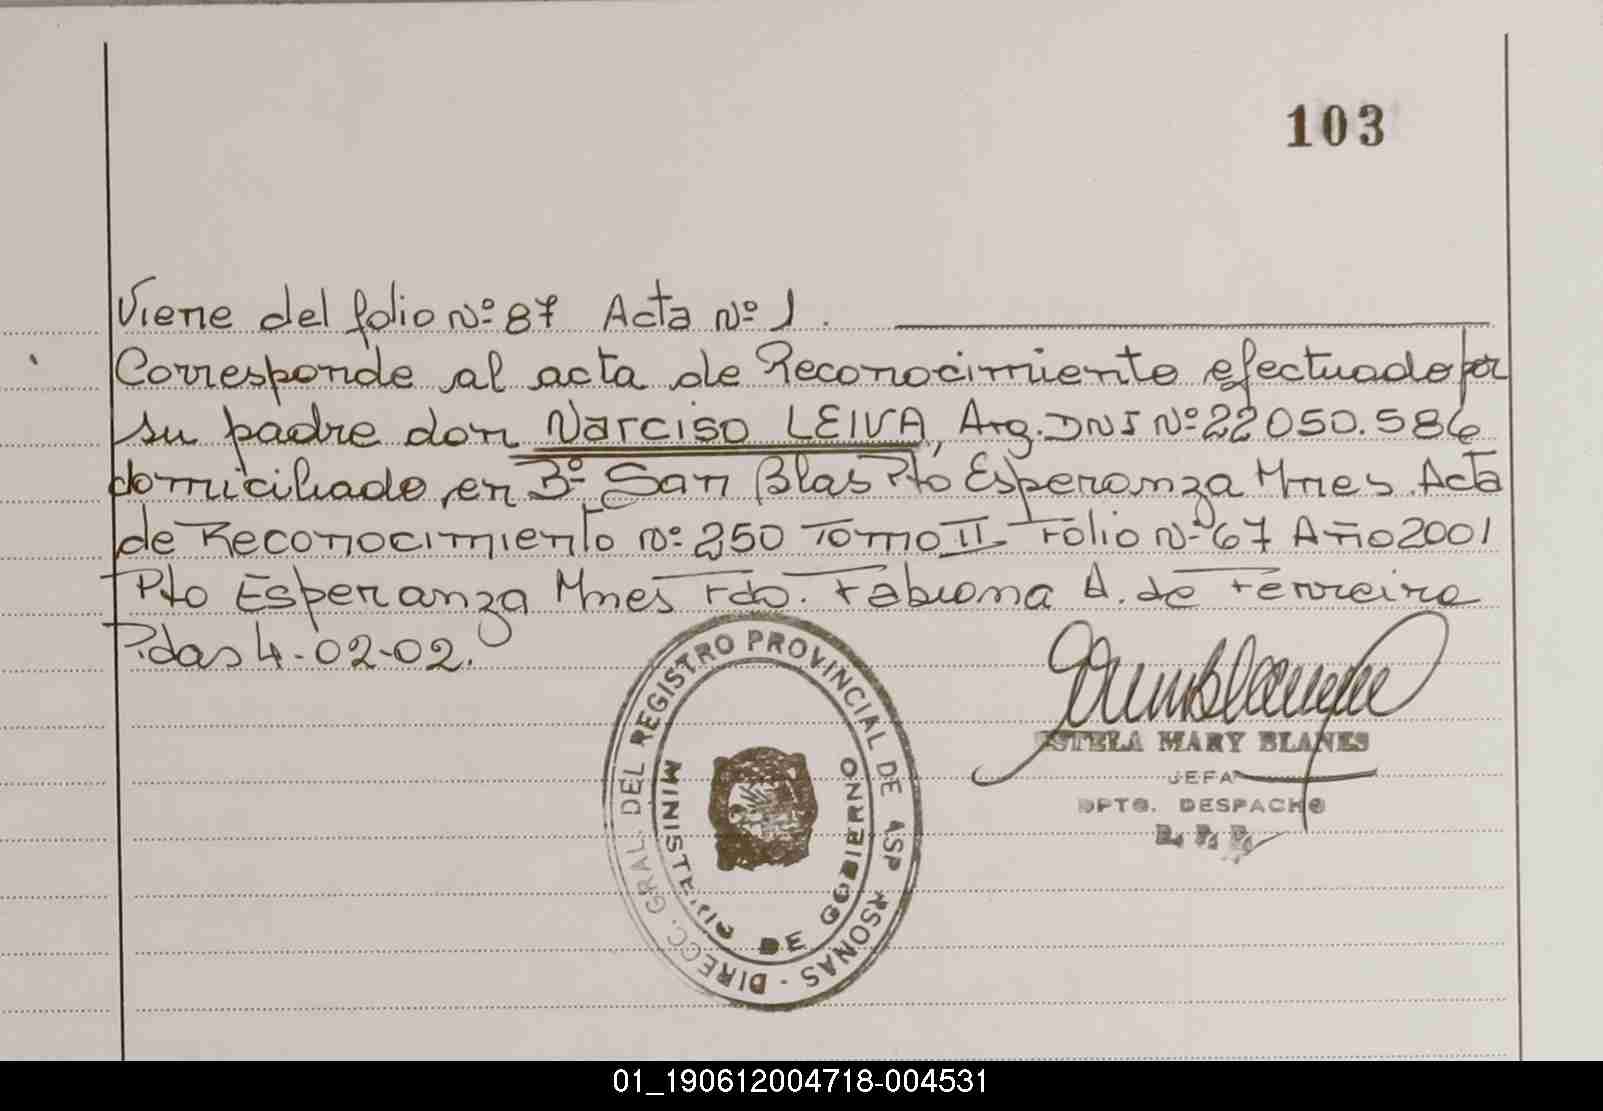 103
Viene del folio Nº 87 Acta Nº 1.
Corresponde al acta de Reconocimiento efectuado por
su padre don Narciso LEIVA, Arg. DNI Nº 22050.586
domiciliado en Bº San Blas Pto Esperanza Mnes. Acta
de Reconocimiento Nº 250 Tomo II Folio Nº 67 Año 2001
Pto Esperanza Mnes Fdo. Fabiana A. de Ferreira
Pdas 4-02-02.
DIRECC. GRAL. DEL REGISTRO PROVINCIAL DE
MINISTERIO DE GOBIERNO
ESTELA MARY BLANES
JEFA
DPTO. DESPACHO
R. P. P.
01_190612004718-004531